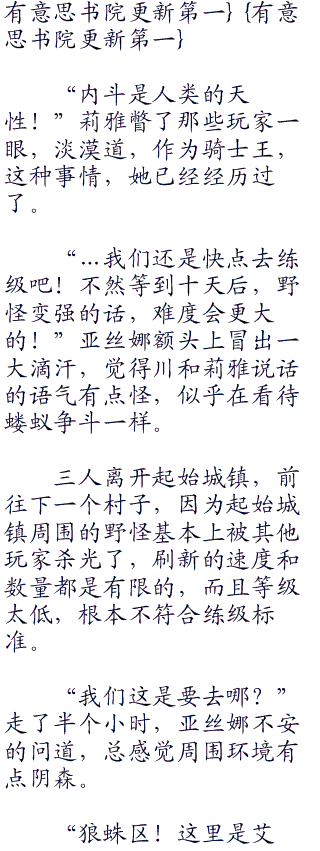 有意思书院更新第一} {有意
思书院更新第一}
“内斗是人类的天
性！”莉雅瞥了那些玩家一
眼，淡漠道，作为骑士王，
这种事情，她已经经历过
了。
“…我们还是快点去练
级吧！不然等到十天后，野
怪变强的话，难度会更大
的！”亚丝娜额头上冒出一
大滴汗，觉得川和莉雅说话
的语气有点怪，似乎在看待
蝼蚁争斗一样。
三人离开起始城镇，前
往下一个村子，因为起始城
镇周围的野怪基本上被其他
玩家杀光了，刷新的速度和
数量都是有限的，而且等级
太低，根本不符合练级标
准。
“我们这是要去哪？”
走了半个小时，亚丝娜不安
的问道，总感觉周围环境有
点阴森。
“狼蛛区！这里是艾